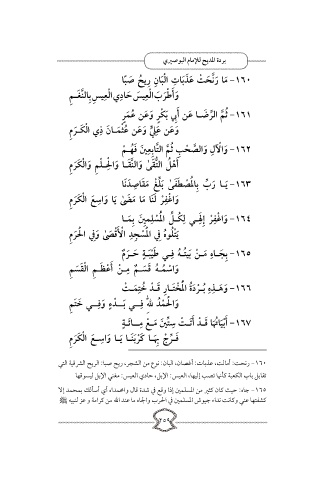 بردة المديح للإمام البوصيري
١٦٠- مَا رَنَّحَتْ عَذَبَاتِ الْبَانِ رِيحُ صَبًا
وَأَطْرَبَ الْعِيسَ حَادِي الْعِيسِ بِالنَّغَمِ
١٦١- ثُمَّ الرِّضَا عَنْ أَبِي بَكْرٍ وَعَنْ عُمَرٍ
وَعَنْ عَلِيٍّ وَعَنْ عُثْمَانَ ذِي الْكَرَمِ
١٦٢- وَالْآلِ وَالصَّحْبِ ثُمَّ التَّابِعِينَ فَهُمْ
أَهْلُ التُّقَى وَالنَّقَا وَالْحِلْمِ وَالْكَرَمِ
١٦٣- يَا رَبِّ بِالْمُصْطَفَى بَلِّغْ مَقَاصِدَنَا
وَاغْفِرْ لَنَا مَا مَضَى يَا وَاسِعَ الْكَرَمِ
١٦٤- وَاغْفِرْ إِلَهِي لِكُلِّ الْمُسْلِمِينَ بِمَا
يَتْلُوهُ فِي الْمَسْجِدِ الْأَقْصَى وَفِي الْحَرَمِ
١٦٥- بِجَاهِ مَنْ بَيْتُهُ فِي طَيْبَةٍ حَرَمٌ
وَاسْمُهُ قَسَمٌ مِنْ أَعْظَمِ الْقَسَمِ
١٦٦- وَهَذِهِ بُرْدَةُ الْمُخْتَارِ قَدْ خُتِمَتْ
وَالْحَمْدُ لِلَّهِ فِي بَدْءٍ وَفِي خَتَمِ
١٦٧- أَبْيَاتُهَا قَدْ أَتَتْ سِتِّينَ مَعْ مِائَةٍ
فَرِّجْ بِهَا كَرْبَنَا يَا وَاسِعَ الْكَرَمِ
١٦٠- رنحت: أمالت، عذبات: أغصان، البان: نوع من الشجر، ريح صبا: الريح الشرقية التي
تقابل باب الكعبة كأنها تصب إليها، العيس: الإبل، حادي العيس: مغني الإبل ليسوقها
١٦٥- جاه: حيث كان كثير من المسلمين إذا وقع في شدة قال وامحمداه أي أسألك بمحمد إلا
كشفتها عني وكانت نداء جيوش المسلمين في الحرب والجاه ما عند الله من كرامة وعز لنبيه ﷺ
٢٥٩